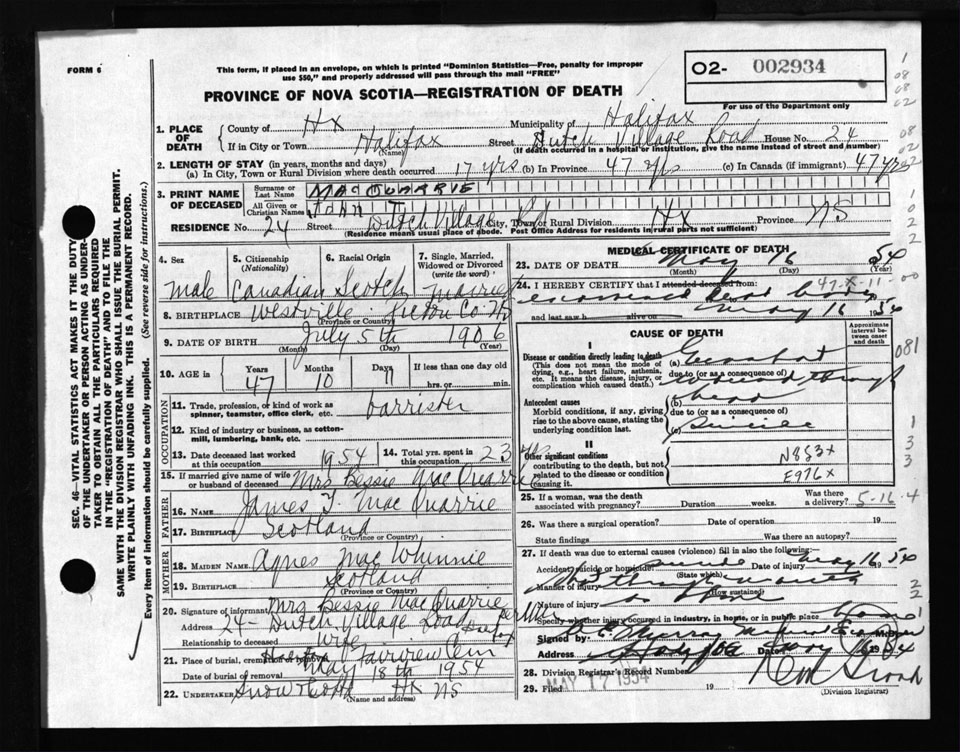 FORM 6
This form, if placed in an envelope, on which is printed "Dominion Statistics—Free, penalty for improper
use $50," and properly addressed will pass through the mail "FREE"
PROVINCE OF NOVA SCOTIA—REGISTRATION OF DEATH
O2- 002934
For use of the Department only
1. PLACE OF DEATH
County of Hx Municipality of Halifax
If in City or Town Halifax (Name) Street Dutch Village Road House No. 24
(If death occurred in a hospital or institution, give the name instead of street and number)
2. LENGTH OF STAY (in years, months and days)
(a) In City, Town or Rural Division where death occurred 17 yrs (b) In Province 47 yrs (c) In Canada (if immigrant) 47 yrs
3. PRINT NAME OF DECEASED
Surname or Last Name MACQUARRIE
All Given or Christian Names John T
RESIDENCE No. 24 Street Dutch Village Rd City, Town or Rural Division Hx Province NS
(Residence means usual place of abode. Post Office Address for residents in rural parts not sufficient)
4. Sex
Male
5. Citizenship (Nationality)
Canadian
6. Racial Origin
Scotch
7. Single, Married, Widowed or Divorced (write the word)
Married
8. BIRTHPLACE Westville Pictou Co. NS
(Province or Country)
9. DATE OF BIRTH July 5th 1906
(Month) (Day) (Year)
10. AGE in
Years Months Days If less than one day
47 10 11 hrs. or min.
OCCUPATION
11. Trade, profession, or kind of work as
spinner, teamster, office clerk, etc. barrister
12. Kind of industry or business, as cotton-
mill, lumbering, bank, etc.
13. Date deceased last worked
at this occupation 1954
14. Total yrs. spent in
this occupation 23 yrs
15. If married give name of wife
or husband of deceased Mrs Bessie MacQuarrie
FATHER
16. Name James T. MacQuarrie
17. Birthplace Scotland
(Province or Country)
MOTHER
18. MAIDEN NAME Agnes MacWhinnie
19. BIRTHPLACE Scotland
(Province or Country)
20. Signature of informant Mrs Bessie MacQuarrie
Address 24- Dutch Village Road Halifax
Relationship to deceased wife
21. Place of burial, cremation or removal Fairview Cem
Date of burial or removal May 18th 1954
22. UNDERTAKER Snow & Co Ltd Hx NS
(Name and address)
MEDICAL CERTIFICATE OF DEATH
23. DATE OF DEATH May 16 54
(Month) (Day) (Year)
24. I HEREBY CERTIFY that I attended deceased from: 47-X-11-00
examined dead body
and last saw h alive on May 16 1954
CAUSE OF DEATH
Approximate interval between onset and death
I
Disease or condition directly leading to death
(This does not mean the mode of
dying, e.g., heart failure, asthenia,
etc. It means the disease, injury, or
complication which caused death.)
(a) Gunshot
due to (or as a consequence of)
wound through
081
Antecedent causes
Morbid conditions, if any, giving
rise to the above cause, stating the
underlying condition last.
(b) head
due to (or as a consequence of)
(c) Suicide
II
Other significant conditions
contributing to the death, but not
related to the disease or condition
causing it.
N853x
E976x
25. If a woman, was the death
associated with pregnancy? Duration weeks. Was there a delivery? 5-16-4
26. Was there a surgical operation? Date of operation 19
State findings Was there an autopsy?
27. If death was due to external causes (violence) fill in also the following:
Accident, suicide or homicide? Suicide Date of injury May 16 1954
(State which)
Manner of injury Shot through mouth
(How sustained)
Nature of injury
Specify whether injury occurred in industry, in home, or in public place Home
Signed by E. Murray
Address Halifax Date May 1954
28. Division Registrar's Record Number
29. Filed MAY 17 1954 19
(Division Registrar)
SEC. 46—VITAL STATISTICS ACT MAKES IT THE DUTY
OF THE UNDERTAKER OR PERSON ACTING AS UNDER-
TAKER TO OBTAIN ALL THE PARTICULARS REQUIRED
IN THE "REGISTRATION OF DEATH" AND TO FILE THE
SAME WITH THE DIVISION REGISTRAR WHO SHALL ISSUE THE BURIAL PERMIT.
WRITE PLAINLY WITH UNFADING INK. THIS IS A PERMANENT RECORD.
Every item of information should be carefully supplied. (See reverse side for instructions.)